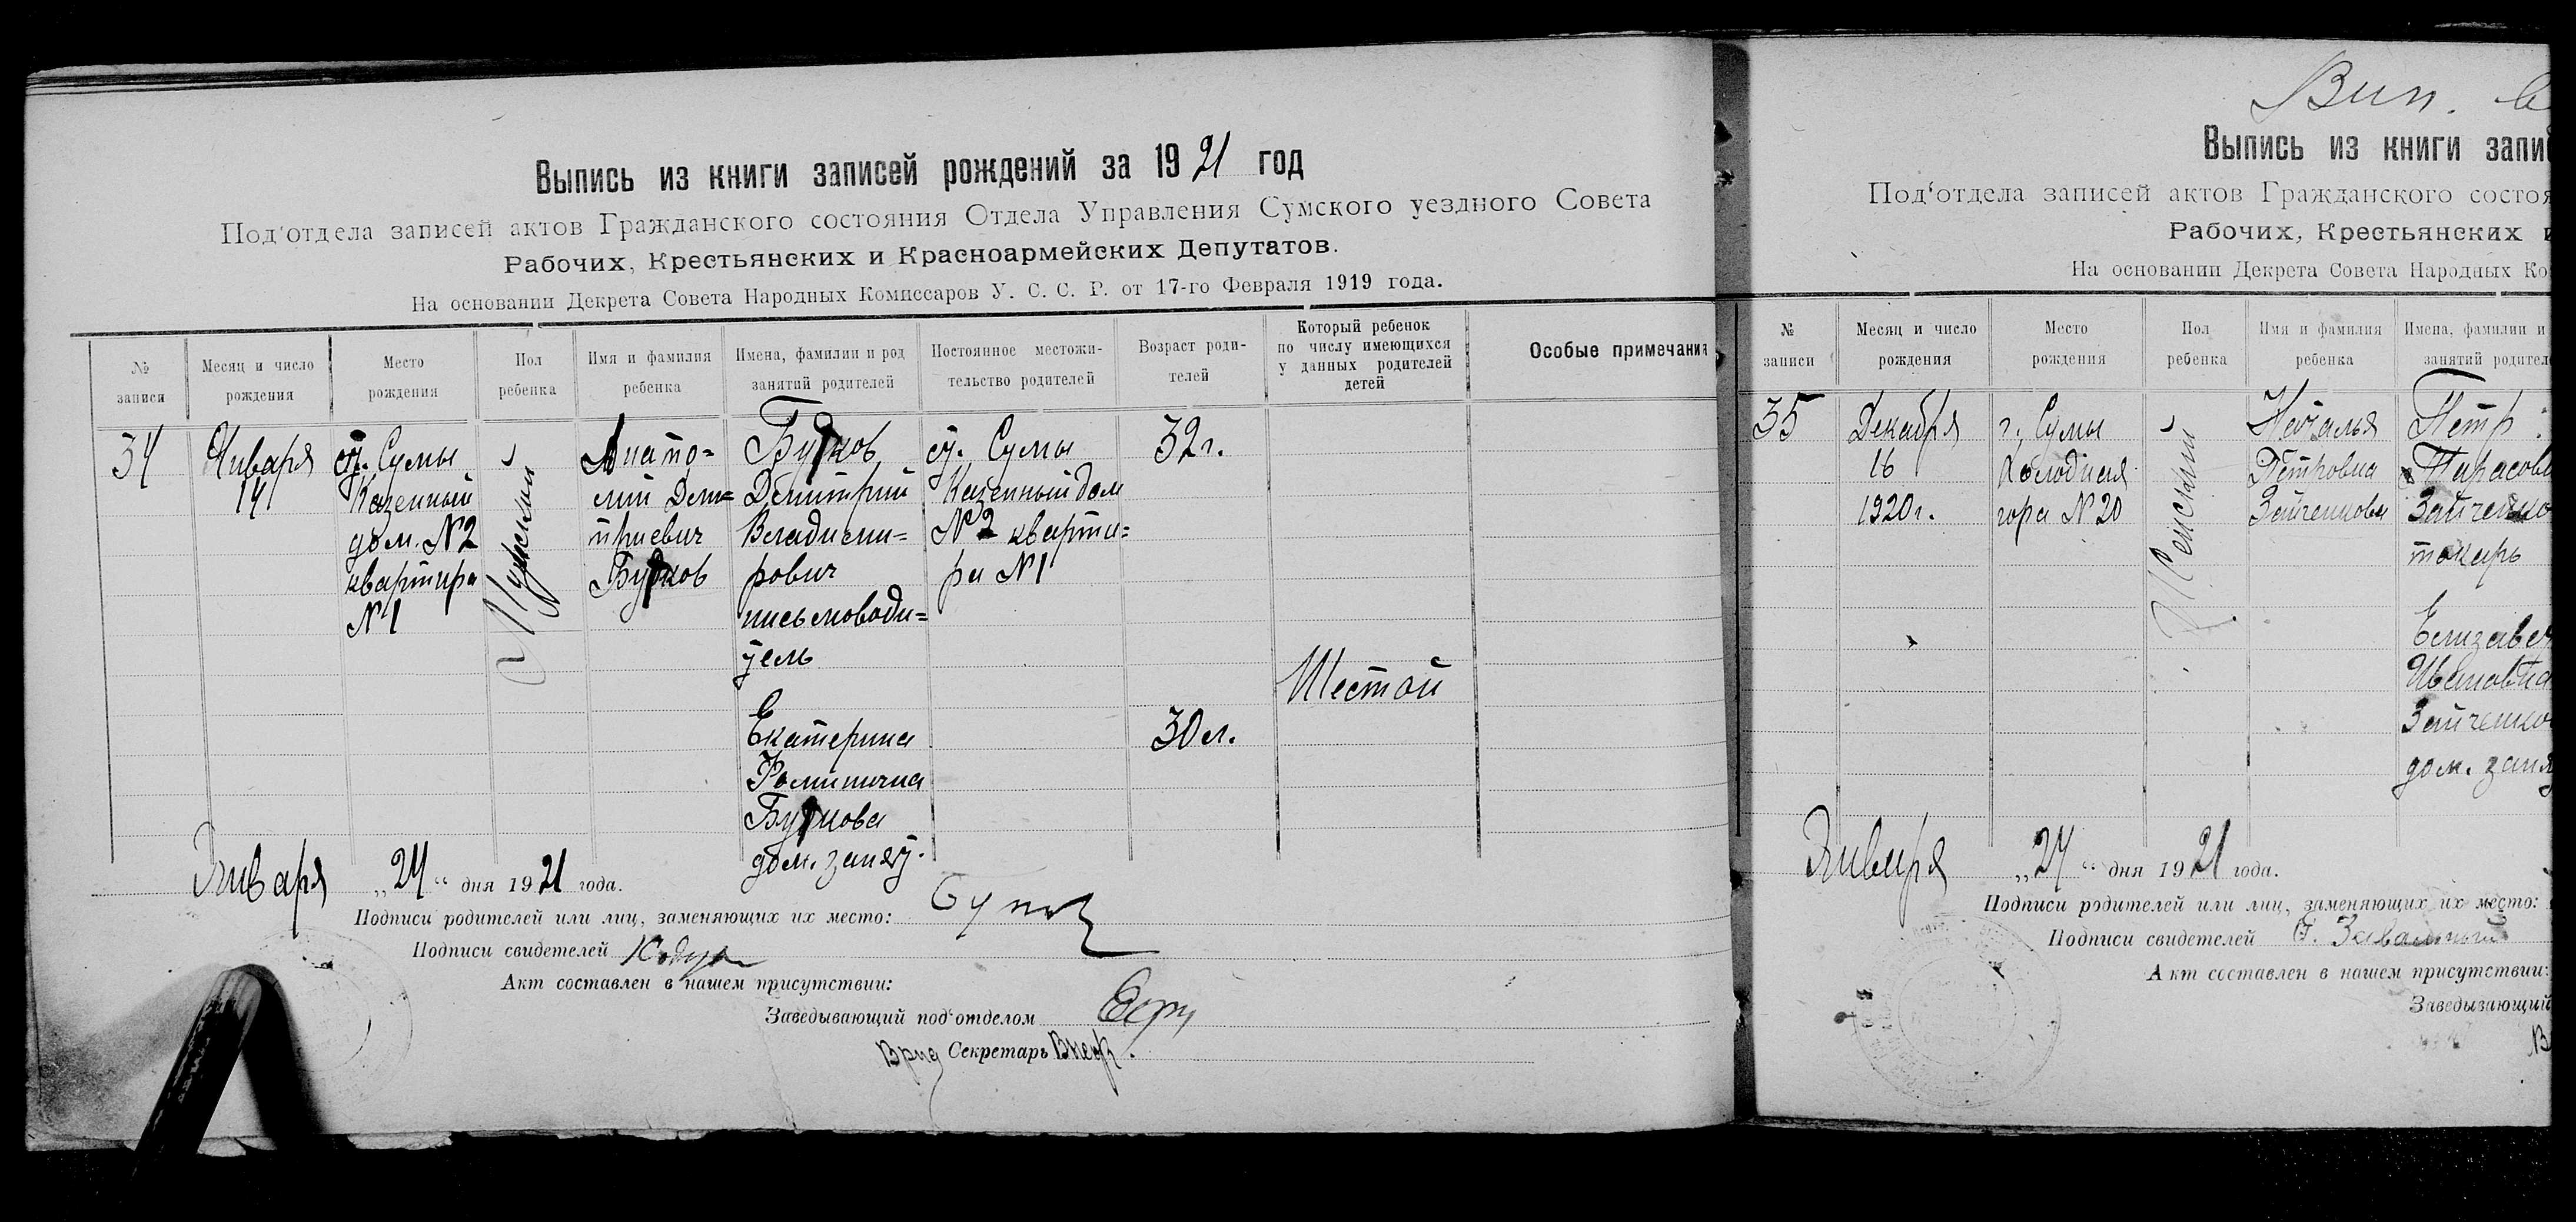 Выпись из книги записей рождений за 1921 год
Под‘отдела записей актов Гражданского состояния Отдела Управления Сумского уездного Совета
Рабочих, Крестьянских и Красноармейских Депутатов.
На основании Декрета Совета Народных Комиссаров У. С. С. Р. от 17-го Февраля 1919 года.
№ записи
Месяц и число рождения
Место рождения
Пол ребенка
Имя и фамилия ребенка
Имена, фамилии и род занятий родителей
Постоянное местожи-
тельство родителей
Возраст роди-
телей
Который ребенок
по числу имеющихся
у данных родителей
детей
Особые примечания
34
Января
14
ст. Сумы
Казенный
дом. №2
квартира
№1
Мужской
Анато=
лий Дми=
триевич
Димитрий
Владими=
рович
письмоводи=
тель
Екатерина
дом. занят.
ст. Сумы
Казенный дом
№2 кварти=
ра №1
32 г.
30 л.
Шестой
Января „24“ дня 1921 года.
Подписи родителей или лиц, заменяющих их место:
Подписи свидетелей
Акт составлен в нашем присутствии:
Заведывающий под‘отделом
Врид Секретарь
Вип.
Выпись из книги запи
Под‘отдела записей актов Гражданского состоя
Рабочих, Крестьянских и
На основании Декрета Совета Народных Ко
№ записи
Месяц и число рождения
Место рождения
Пол ребенка
Имя и фамилия ребенка
Имена, фамилии и
занятий родител
35
Декабря
16
1920 г.
г. Сумы
Холодная
гора №20
Женский
Наталья
Петровна
Зайченкова
Петр
Тарасов
Зайченко
токарь
Елизавет
Ивановна
Зайченко
дом. заня
Января „24“ дня 1921 года.
Подписи родителей или лиц, заменяющих их место:
Подписи свидетелей
Акт составлен в нашем присутствии:
Заведывающий